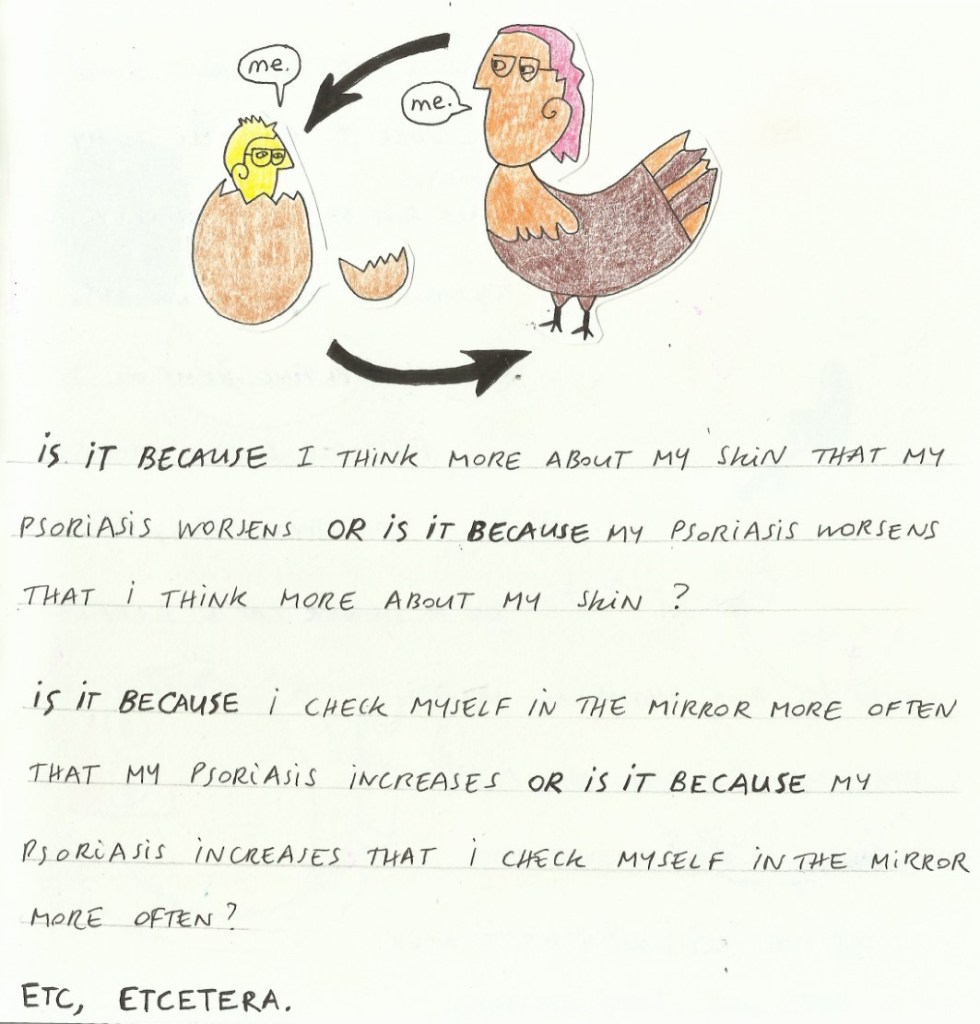 me.
me.
iS iT BECAUSE I THiNK MORE ABOUT MY SKiN THAT MY
PSORiASiS WORSENS OR iS iT BECAUSE MY PSORiASiS WORSENS
THAT i THiNK MORE ABOUT MY SKiN ?
iS iT BECAUSE i CHECK MYSELF iN THE MiRROR MORE OFTEN
THAT MY PSORiASiS iNCREASES OR iS iT BECAUSE MY
PSORiASiS iNCREASES THAT i CHECK MYSELF iN THE MiRROR
MORE OFTEN ?
ETC, ETCETERA.